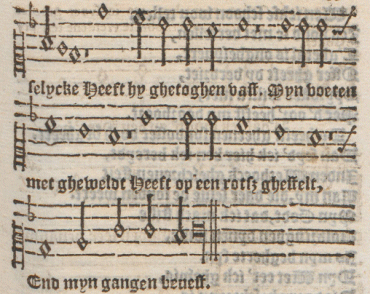 selycke Heeft hy ghetoghen vast. Myn voeten
met gheweldt Heeft op een rotsz ghestelt,
End myn gangen benest.